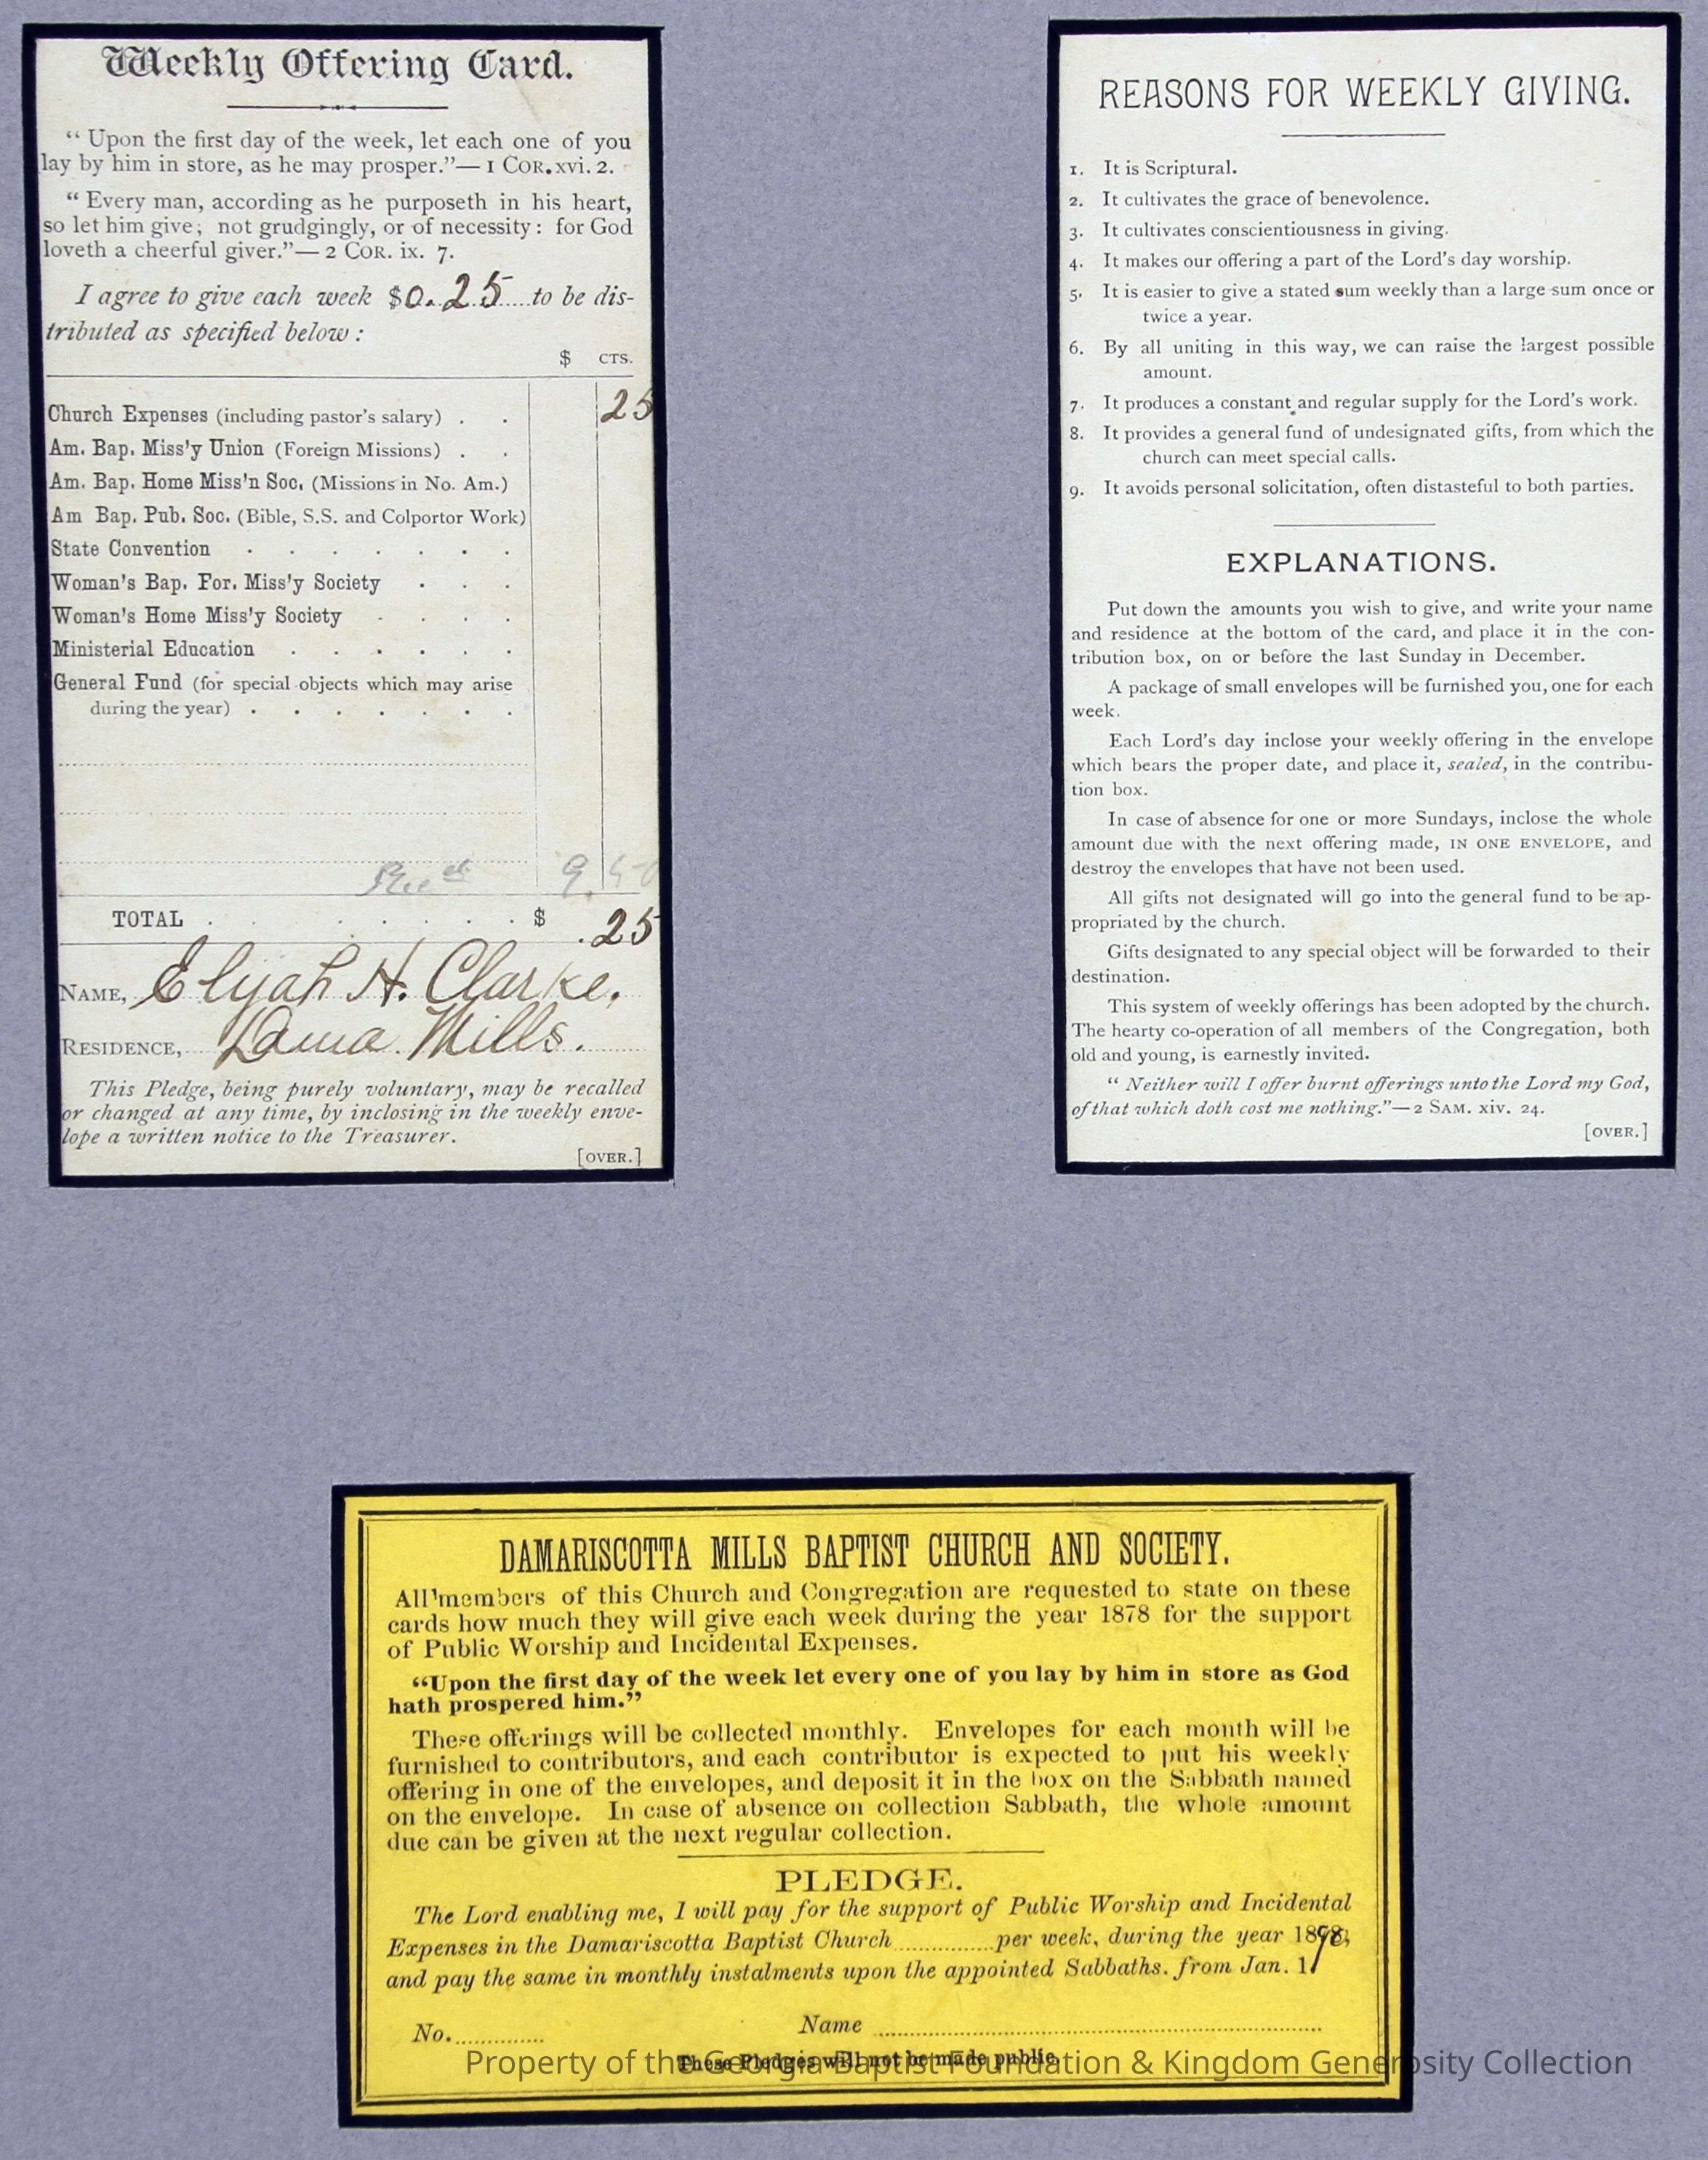 Weekly Offering Card.
“Upon the first day of the week, let each one of you
lay by him in store, as he may prosper.”—1 COR. xvi. 2.
“Every man, according as he purposeth in his heart,
so let him give; not grudgingly, or of necessity: for God
loveth a cheerful giver.”—2 COR. ix. 7.
I agree to give each week $0.25 to be dis-
tributed as specified below:
$ CTS.
Church Expenses (including pastor's salary) . . 25
Am. Bap. Miss'y Union (Foreign Missions) . .
Am. Bap. Home Miss'n Soc. (Missions in No. Am.)
Am Bap. Pub. Soc. (Bible, S.S. and Colportor Work)
State Convention . . . . . . .
Woman's Bap. For. Miss'y Society . . .
Woman's Home Miss'y Society . . . .
Ministerial Education . . . . . .
General Fund (for special objects which may arise
during the year) . . . . . . .
9.50
TOTAL . . . . . . . $ .25
NAME, Elijah H. Clarke.
RESIDENCE, Dama. Mills.
This Pledge, being purely voluntary, may be recalled
or changed at any time, by inclosing in the weekly enve-
lope a written notice to the Treasurer.
[OVER.]
REASONS FOR WEEKLY GIVING.
1. It is Scriptural.
2. It cultivates the grace of benevolence.
3. It cultivates conscientiousness in giving.
4. It makes our offering a part of the Lord's day worship.
5. It is easier to give a stated sum weekly than a large sum once or
twice a year.
6. By all uniting in this way, we can raise the largest possible
amount.
7. It produces a constant and regular supply for the Lord's work.
8. It provides a general fund of undesignated gifts, from which the
church can meet special calls.
9. It avoids personal solicitation, often distasteful to both parties.
EXPLANATIONS.
Put down the amounts you wish to give, and write your name
and residence at the bottom of the card, and place it in the con-
tribution box, on or before the last Sunday in December.
A package of small envelopes will be furnished you, one for each
week.
Each Lord's day inclose your weekly offering in the envelope
which bears the proper date, and place it, sealed, in the contribu-
tion box.
In case of absence for one or more Sundays, inclose the whole
amount due with the next offering made, IN ONE ENVELOPE, and
destroy the envelopes that have not been used.
All gifts not designated will go into the general fund to be ap-
propriated by the church.
Gifts designated to any special object will be forwarded to their
destination.
This system of weekly offerings has been adopted by the church.
The hearty co-operation of all members of the Congregation, both
old and young, is earnestly invited.
“Neither will I offer burnt offerings unto the Lord my God,
of that which doth cost me nothing.”—2 SAM. xiv. 24.
[OVER.]
DAMARISCOTTA MILLS BAPTIST CHURCH AND SOCIETY.
All members of this Church and Congregation are requested to state on these
cards how much they will give each week during the year 1878 for the support
of Public Worship and Incidental Expenses.
“Upon the first day of the week let every one of you lay by him in store as God
hath prospered him.”
These offerings will be collected monthly. Envelopes for each month will be
furnished to contributors, and each contributor is expected to put his weekly
offering in one of the envelopes, and deposit it in the box on the Sabbath named
on the envelope. In case of absence on collection Sabbath, the whole amount
due can be given at the next regular collection.
PLEDGE.
The Lord enabling me, I will pay for the support of Public Worship and Incidental
Expenses in the Damariscotta Baptist Church ............... per week, during the year 1878,
and pay the same in monthly instalments upon the appointed Sabbaths. from Jan. 1.
No. .............. Name ..............................
These Pledges will not be made public.
Property of the Georgia Baptist Foundation & Kingdom Generosity Collection